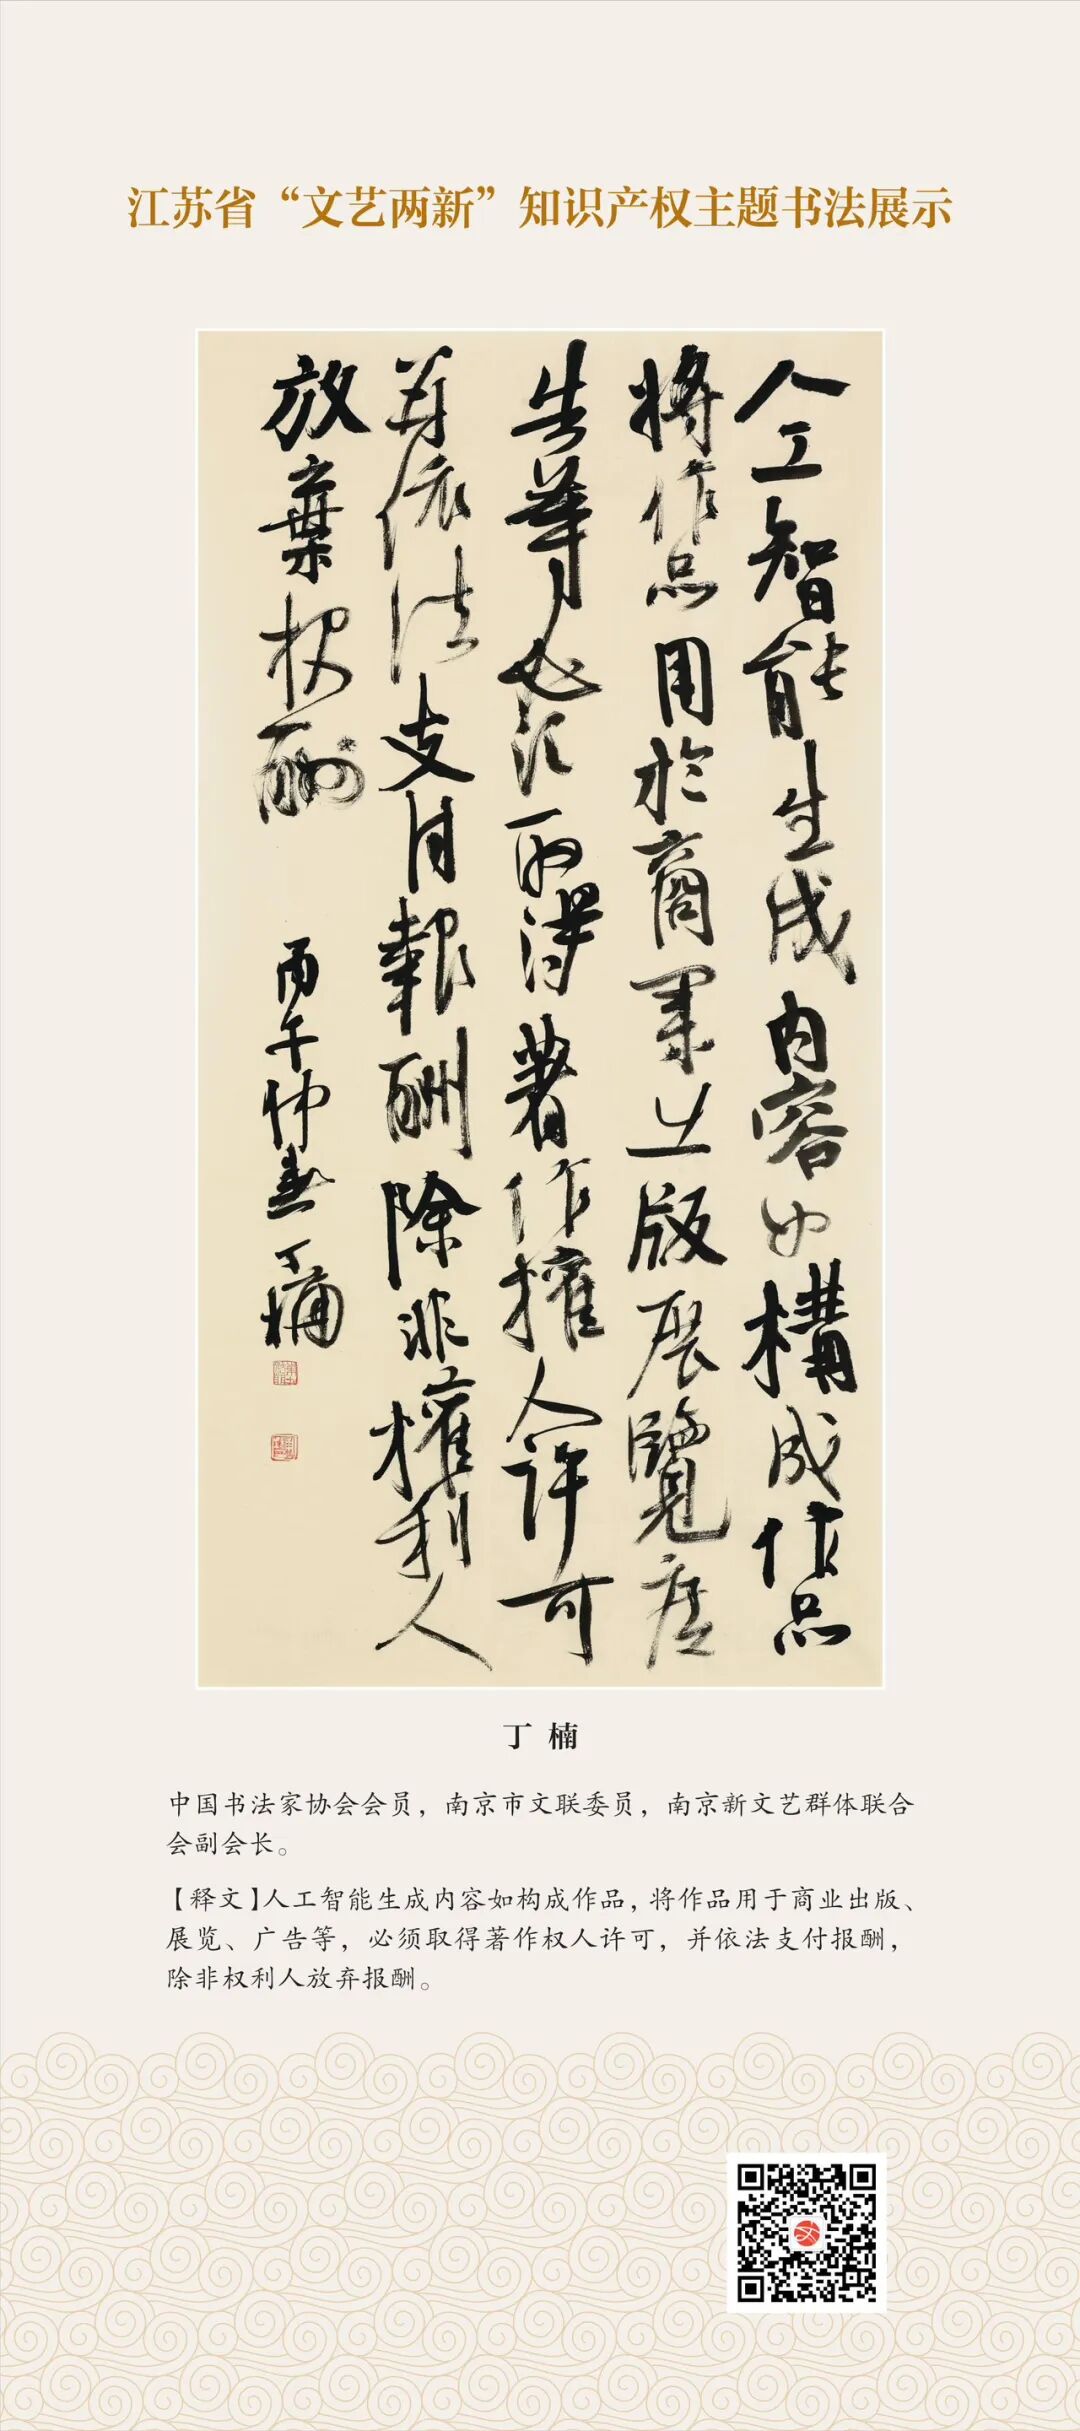 江苏省“文艺两新”知识产权主题书法展示
人工智能生成内容如構成作品
將作品用於商業出版展覽廣
告等必須取得著作權人許可
并依法支付報酬除非權利人
放棄报酬
丙午仲春丁楠
丁 楠
中国书法家协会会员，南京市文联委员，南京新文艺群体联合
会副会长。
【释文】人工智能生成内容如构成作品，将作品用于商业出版、
展览、广告等，必须取得著作权人许可，并依法支付报酬，
除非权利人放弃报酬。